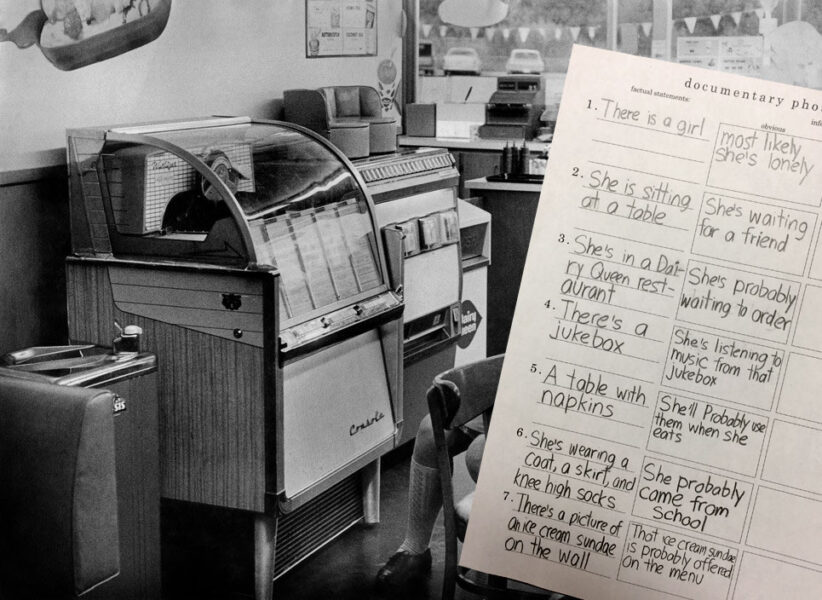 documentary pho
factual statements:
obvious
inf
1. There is a girl
most likely
she's lonely
2. She is sitting
at a table
She's waiting
for a friend
3. She's in a Dai-
ry Queen rest-
aurant
She's probably
waiting to order
4. There's a
jukebox
She's listening to
music from that
jukebox
5. A table with
napkins
She'll Probably use
them when she
eats
6. She's wearing a
coat, a skirt, and
knee high socks
She probably
came from
school
7. There's a picture of
an ice cream sundae
on the wall
That ice cream sundae
is probably offered
on the menu
Console
dairy
queen